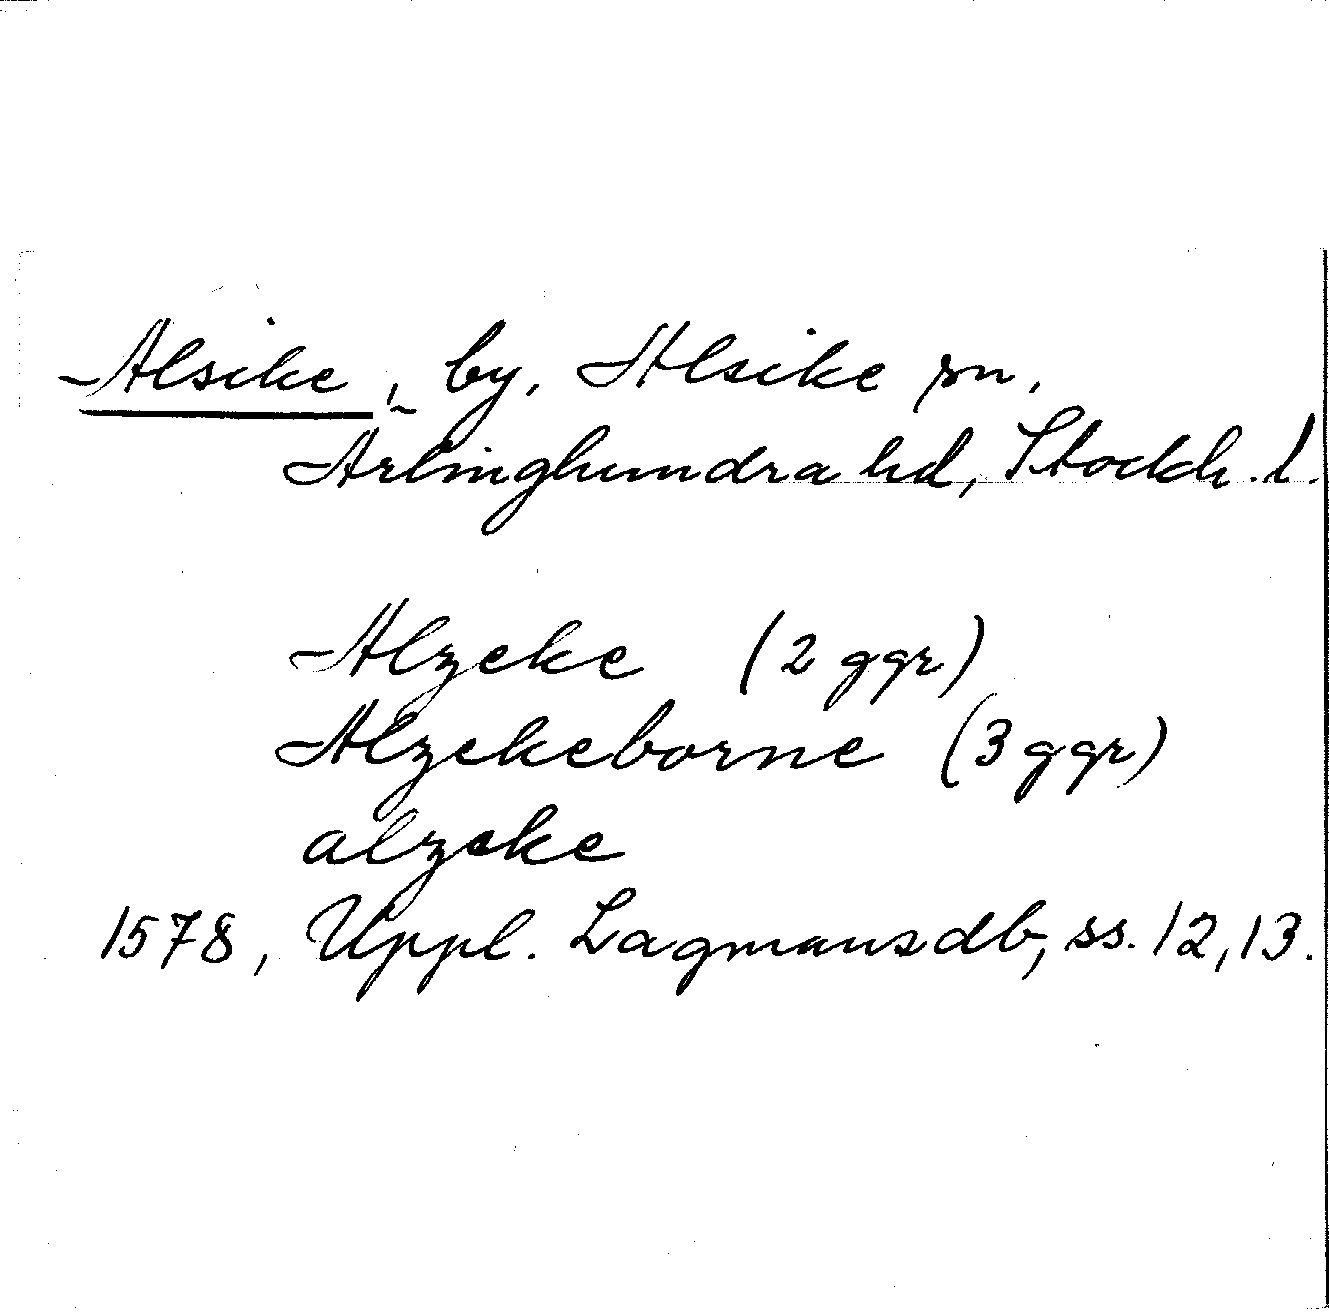 Alsike, by, Alsike sn,
Ärlinghundra hd, Stockh. l.
Alzeke (2 ggr)
Alzekeborne (3 ggr)
alzeke
1578, Uppl. Lagmansdb, ss. 12, 13.